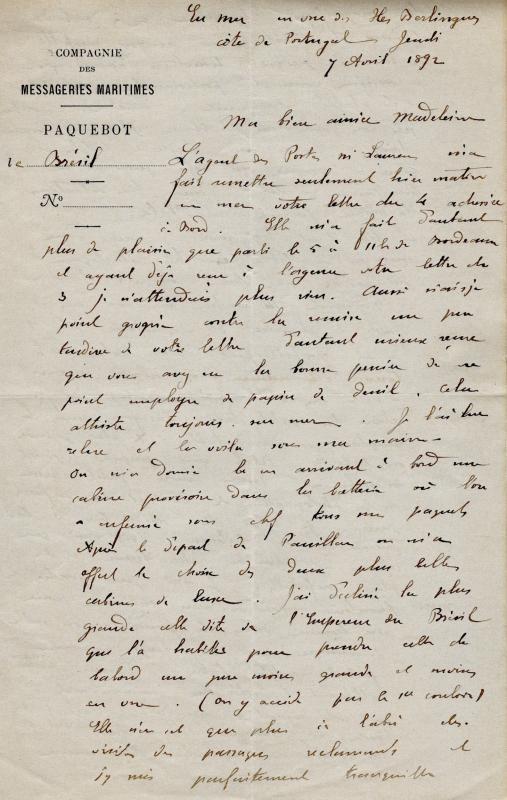 En mer en vue des Iles Berlingues
côte de Portugal Jeudi
7 Avril 1892
COMPAGNIE
DES
MESSAGERIES MARITIMES
PAQUEBOT
le Brésil
No
Ma bien aimée Madeleine
L'agent des Postes m'a
fait remettre seulement hier matin
en mer votre lettre du 4 adressée
à Bord. Elle m'a fait d'autant
plus de plaisir que parti le 5 à 11h de Bordeaux
et ayant déjà reçu à l'agence votre lettre du
3 je n'attendais plus rien. Aussi n'ai-je
point grogné contre la remise un peu
tardive de votre lettre d'autant mieux reçue
que vous avez eu la bonne pensée de ne
point employer de papier de deuil, cela
attriste toujours sur mer. Je l'ai lue
relue et la voila sous ma main -
On m'a donné le en arrivant à bord une
cabine provisoire dans la batterie où l'on
a enfermé sous clef tous mes paquets
Après le départ de Pauillac on m'a
offert le choix des deux plus belles
cabines de luxe. J'ai décliné la plus
grande celle dite de l'Empereur du Brésil
qui l'a habitée pour prendre celle de
babord un peu moins grande et moins
en vue. (on y accède par le couloir)
Elle n'en est que plus à l'abri des
visites des passagers réclamants et
j'y suis parfaitement tranquille